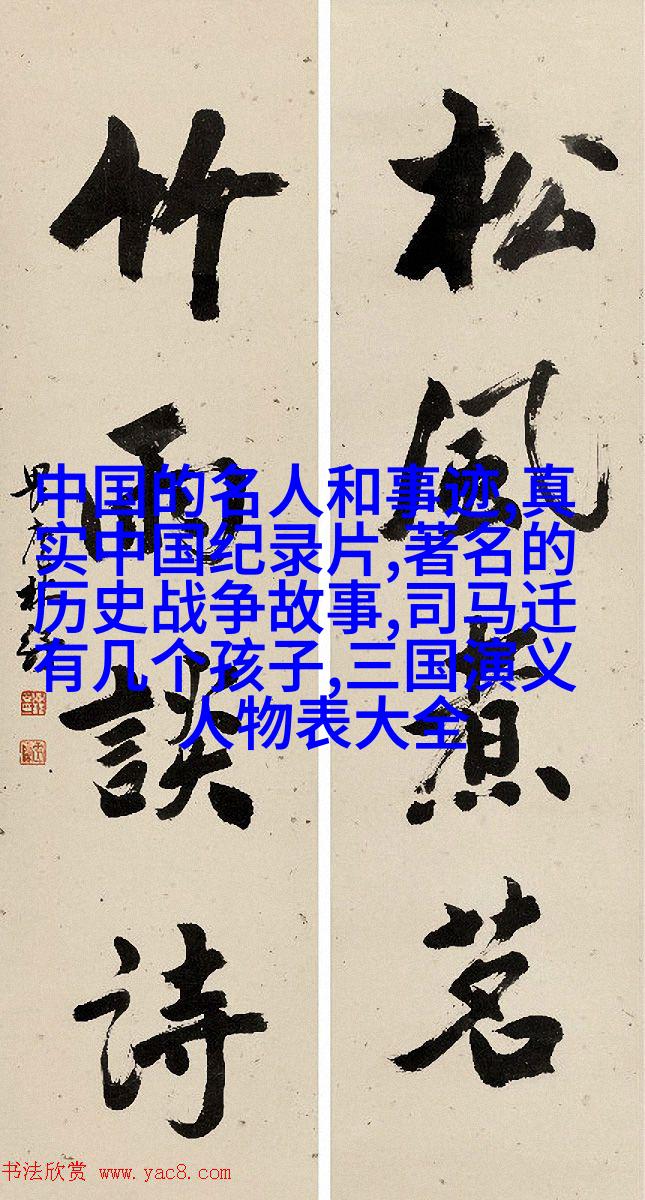 松風煮茗
竹雨談詩
中国的名人和事迹,真
实中国纪录片,著名的
历史战争故事,司马迁
有几个孩子,三国演义
人物表大全
书法欣赏 www.yac8.com